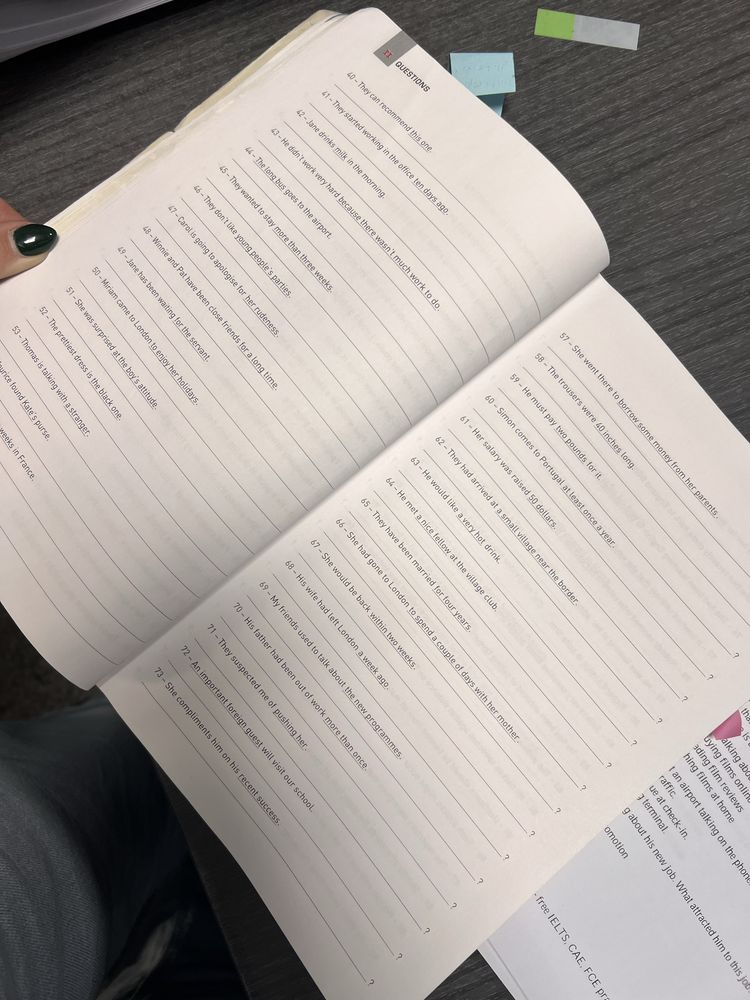 II QUESTIONS
40 – They can recommend this one.
41 – They started working in the office ten days ago.
42 – Jane drinks milk in the morning.
43 – He didn't work very hard because there wasn't much work to do.
44 – The long bus goes to the airport.
45 – They wanted to stay more than three weeks.
46 – They don't like young people's parties.
47 – Carol is going to apologise for her rudeness.
48 – Winnie and Pat have been close friends for a long time.
49 – Jane has been waiting for the servant.
50 – Miriam came to London to enjoy her holidays.
51 – She was surprised at the boy's attitude.
52 – The prettiest dress is the black one.
53 – Thomas is talking with a stranger.
found Kate's purse.
weeks in France.
57 – She went there to borrow some money from her parents.
?
58 – The trousers were 40 inches long.
?
59 – He must pay two pounds for it.
?
60 – Simon comes to Portugal at least once a year.
?
61 – Her salary was raised 50 dollars.
?
62 – They had arrived at a small village near the border.
?
63 – He would like a very hot drink.
?
64 – He met a nice fellow at the village club.
?
65 – They have been married for four years.
?
66 – She had gone to London to spend a couple of days with her mother.
?
67 – She would be back within two weeks.
?
68 – His wife had left London a week ago.
?
69 – My friends used to talk about the new programmes.
?
70 – His father had been out of work more than once.
?
71 – They suspected me of pushing her.
?
72 – An important foreign guest will visit our school.
?
73 – She compliments him on his recent success.
?
films online
film reviews
films at home
an airport talking on the phone
traffic.
at check-in.
terminal.
about his new job. What attracted him to this job
free IELTS, CAE, FCE